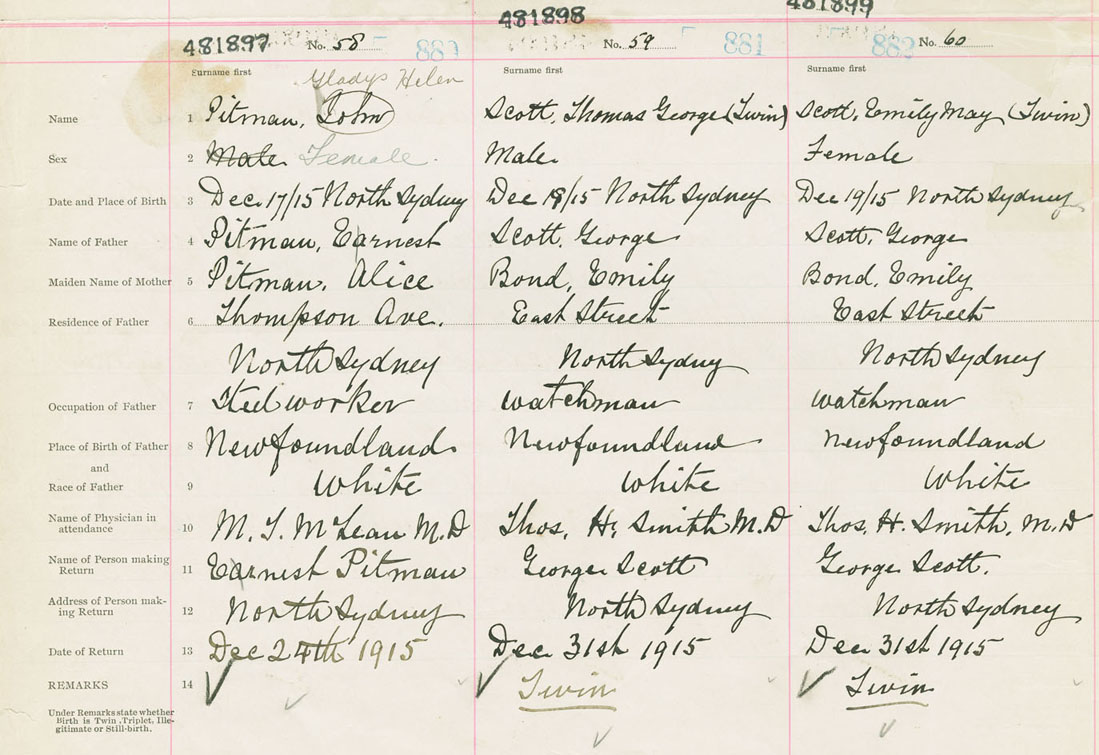 481897 No. 58 880 481898 No. 59 881 481899 882 No. 60
Surname first Surname first Surname first
Gladys Helen
Name 1 Pitman, John Scott, Thomas George (Twin) Scott, Emily May (Twin)
Sex 2 Male Female. Male Female
Date and Place of Birth 3 Dec 17/15 North Sydney Dec 19/15 North Sydney Dec 19/15 North Sydney
Name of Father 4 Pitman, Earnest Scott, George Scott, George
Maiden Name of Mother 5 Pitman, Alice Bond, Emily Bond, Emily
Residence of Father 6 Thompson Ave. East Street East Street
North Sydney North Sydney North Sydney
Occupation of Father 7 Steel worker Watchman Watchman
Place of Birth of Father 8 Newfoundland Newfoundland Newfoundland
and
Race of Father 9 White White White
Name of Physician in
attendance 10 M. T. McLean M.D Thos. H. Smith M.D Thos. H. Smith, M.D
Name of Person making
Return 11 Earnest Pitman George Scott George Scott.
Address of Person mak-
ing Return 12 North Sydney North Sydney North Sydney
Date of Return 13 Dec 24th 1915 Dec 31st 1915 Dec 31st 1915
REMARKS 14 Twin Twin
Under Remarks state whether
Birth is Twin, Triplet, Ille-
gitimate or Still-birth.